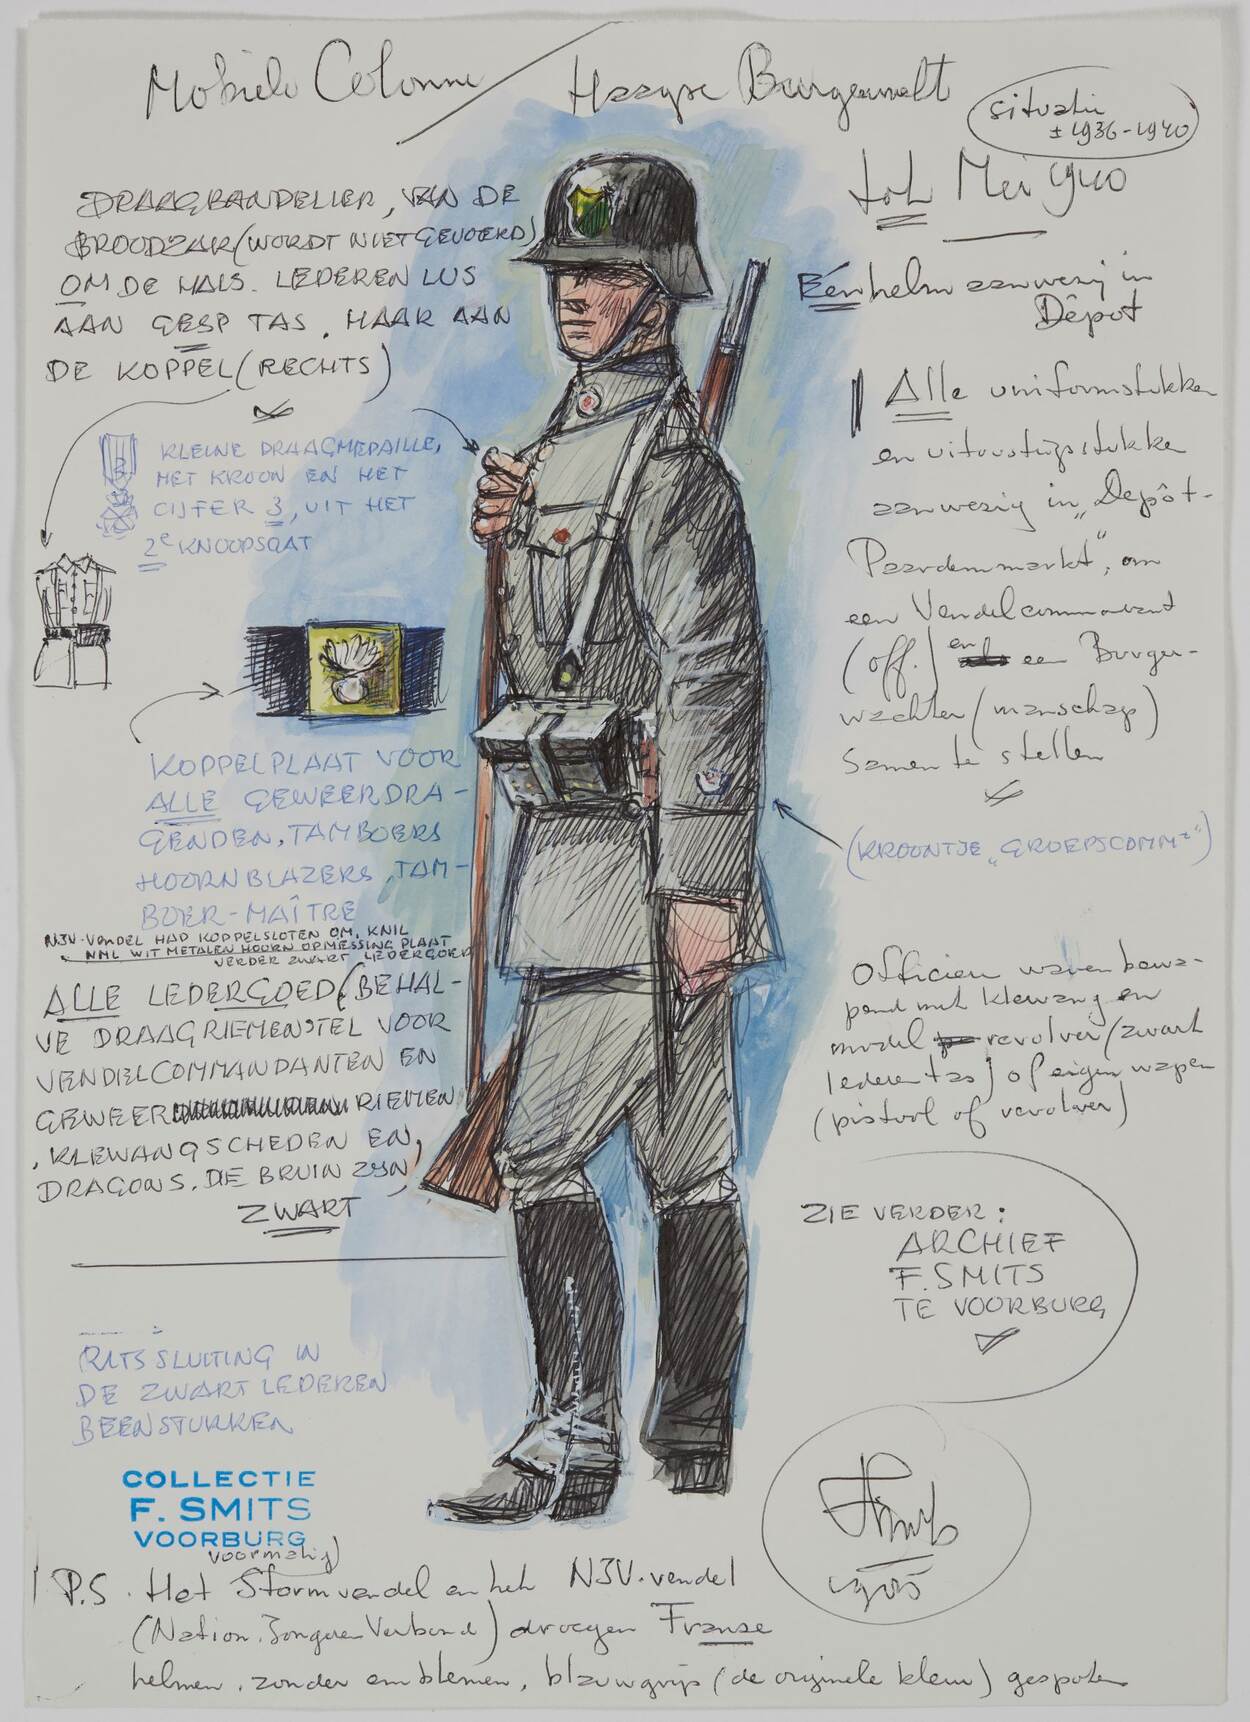 Mobiele Colonne / Haagse Burgerwacht
situatie
± 1936-1940
tot Mei 1940
DRAAGBANDELIER, VAN DE
BROODZAK (WORDT NIET GEVOERD)
OM DE HALS. LEDEREN LUS
AAN GESP TAS, MAAR AAN
DE KOPPEL (RECHTS)
KLEINE DRAAGMEDAILLE,
MET KROON EN HET
CIJFER 3, UIT HET
2e KNOOPSGAT
KOPPELPLAAT VOOR
ALLE GEWEERDRA-
GENDEN, TAMBOERS
HOORNBLAZERS, TAM-
BOER-MAÎTRE
NJV-VENDEL HAD KOPPELSLOTEN OM. KNIL
NML WIT METALEN HOORN OP MESSING PLAAT
VERDER ZWART LEDERGOED
ALLE LEDERGOED (BEHAL-
VE DRAAGRIEMENSTEL VOOR
VENDELCOMMANDANTEN EN
GEWEER RIEMEN
, KLEWANGSCHEDEN EN,
DRAGONS. DIE BRUIN ZYN,
ZWART
RITSSLUITING IN
DE ZWART LEDEREN
BEENSTUKKEN
COLLECTIE
F. SMITS
VOORBURG
Eén helm aanwezig in
Dêpot
Alle uniformstukken
en uitrustingsstukken
aanwezig in „Depôt-
Paardenmarkt", om
een Vendelcommandant
(off.) en een Burger-
wachter (manschap)
samen te stellen
(KROONTJE „GROEPSCOMMt")
Officieren waren bewa-
pend met klewang en
model revolver (zwart
lederen tas) of eigen wapen
(pistool of revolver)
ZIE VERDER:
ARCHIEF
F. SMITS
TE VOORBURG
FSmits
1985
voormalig)
P.S. Het Stormvendel en het NJV-vendel
(Nation. Jongeren Verbond) droegen Franse
helmen, zonder emblemen, blauwgrijs (de originele kleur) gespoten